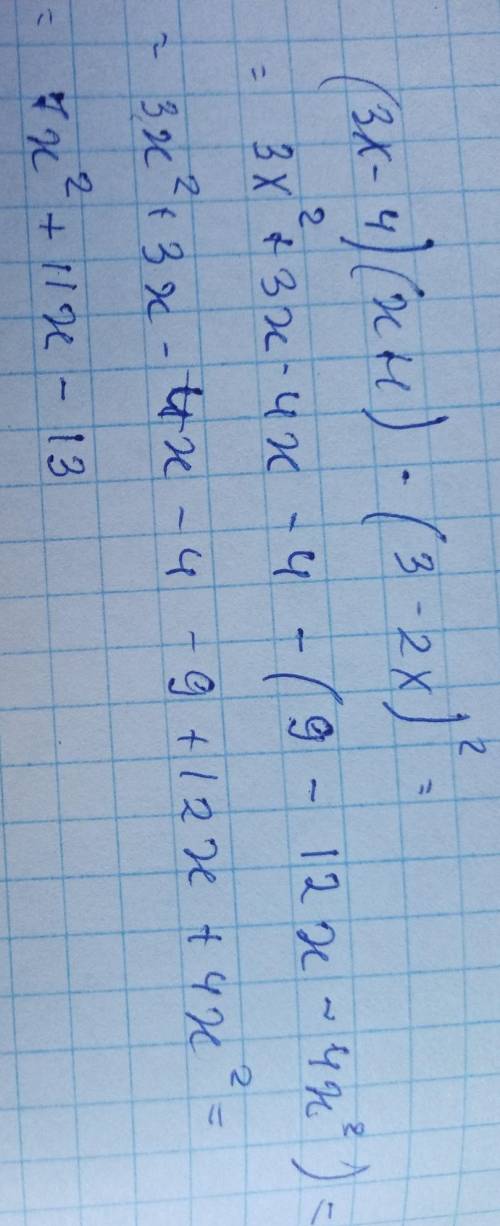 (3x-4)(x+1) - (3-2x)² =
= 3x² + 3x - 4x - 4 - (9 - 12x - 4x²) =
= 3x² + 3x - 4x - 4 - 9 + 12x + 4x² =
= 7x² + 11x - 13